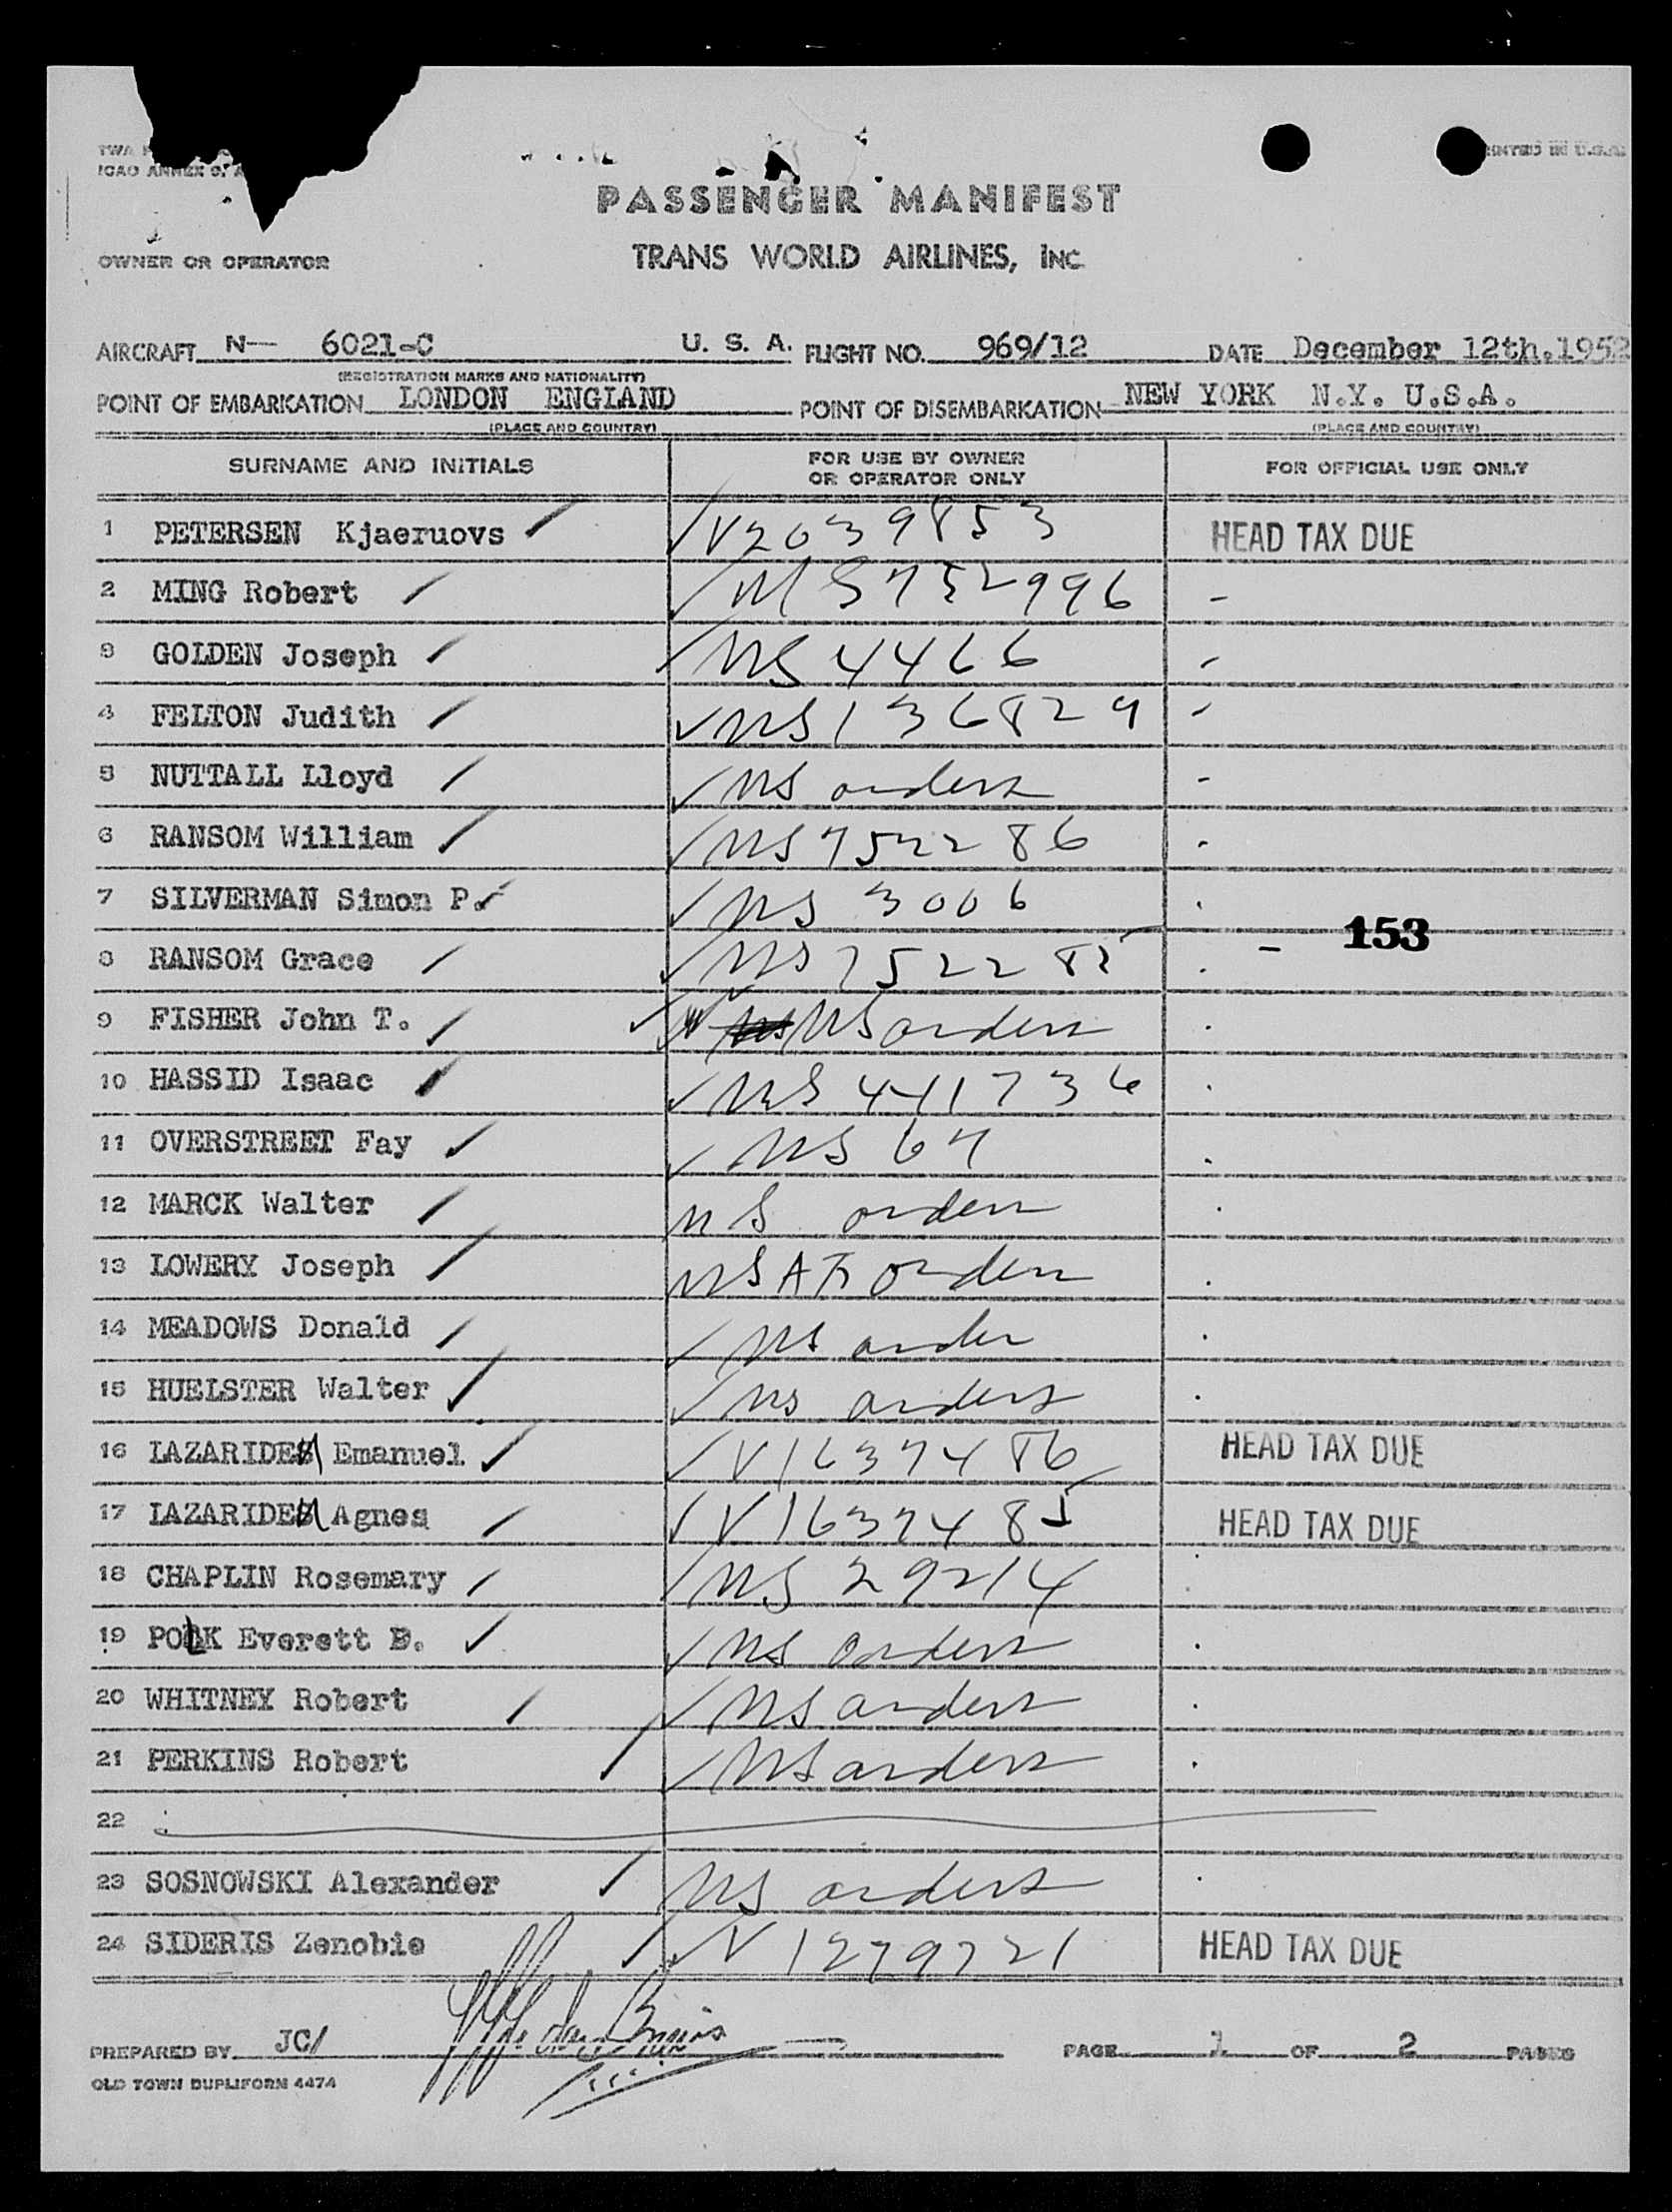 TWA
ICAO ANNEX 9, A
PRINTED IN U.S.A.
PASSENGER MANIFEST
OWNER OR OPERATOR
TRANS WORLD AIRLINES, INC
AIRCRAFT N— 6021-C U. S. A. FLIGHT NO. 969/12 DATE December 12th.1952
(REGISTRATION MARKS AND NATIONALITY)
POINT OF EMBARKATION LONDON ENGLAND POINT OF DISEMBARKATION NEW YORK N.Y. U.S.A.
(PLACE AND COUNTRY) (PLACE AND COUNTRY)
SURNAME AND INITIALS FOR USE BY OWNER OR OPERATOR ONLY FOR OFFICIAL USE ONLY
1 PETERSEN Kjaeruovs V2039853 HEAD TAX DUE
2 MING Robert
3 GOLDEN Joseph US 4466
4 FELTON Judith US 136829
5 NUTTALL Lloyd US orders
6 RANSOM William US 752286
7 SILVERMAN Simon P. US 3006
153
8 RANSOM Grace US 752285
9 FISHER John T. US orders
10 HASSID Isaac US 441736
11 OVERSTREET Fay US 67
12 MARCK Walter US orders
13 LOWERY Joseph USAF orders
14 MEADOWS Donald US order
15 HUELSTER Walter US orders
16 LAZARIDE Emanuel V1637486 HEAD TAX DUE
17 LAZARIDE Agnes V1637485 HEAD TAX DUE
18 CHAPLIN Rosemary US 29214
19 POLK Everett B. US orders
20 WHITNEY Robert US orders
21 PERKINS Robert US orders
22
23 SOSNOWSKI Alexander US orders
24 SIDERIS Zenobie V1279721 HEAD TAX DUE
PREPARED BY JC/ PAGE 1 OF 2 PAGES
OLD TOWN DUPLIFORM 4474